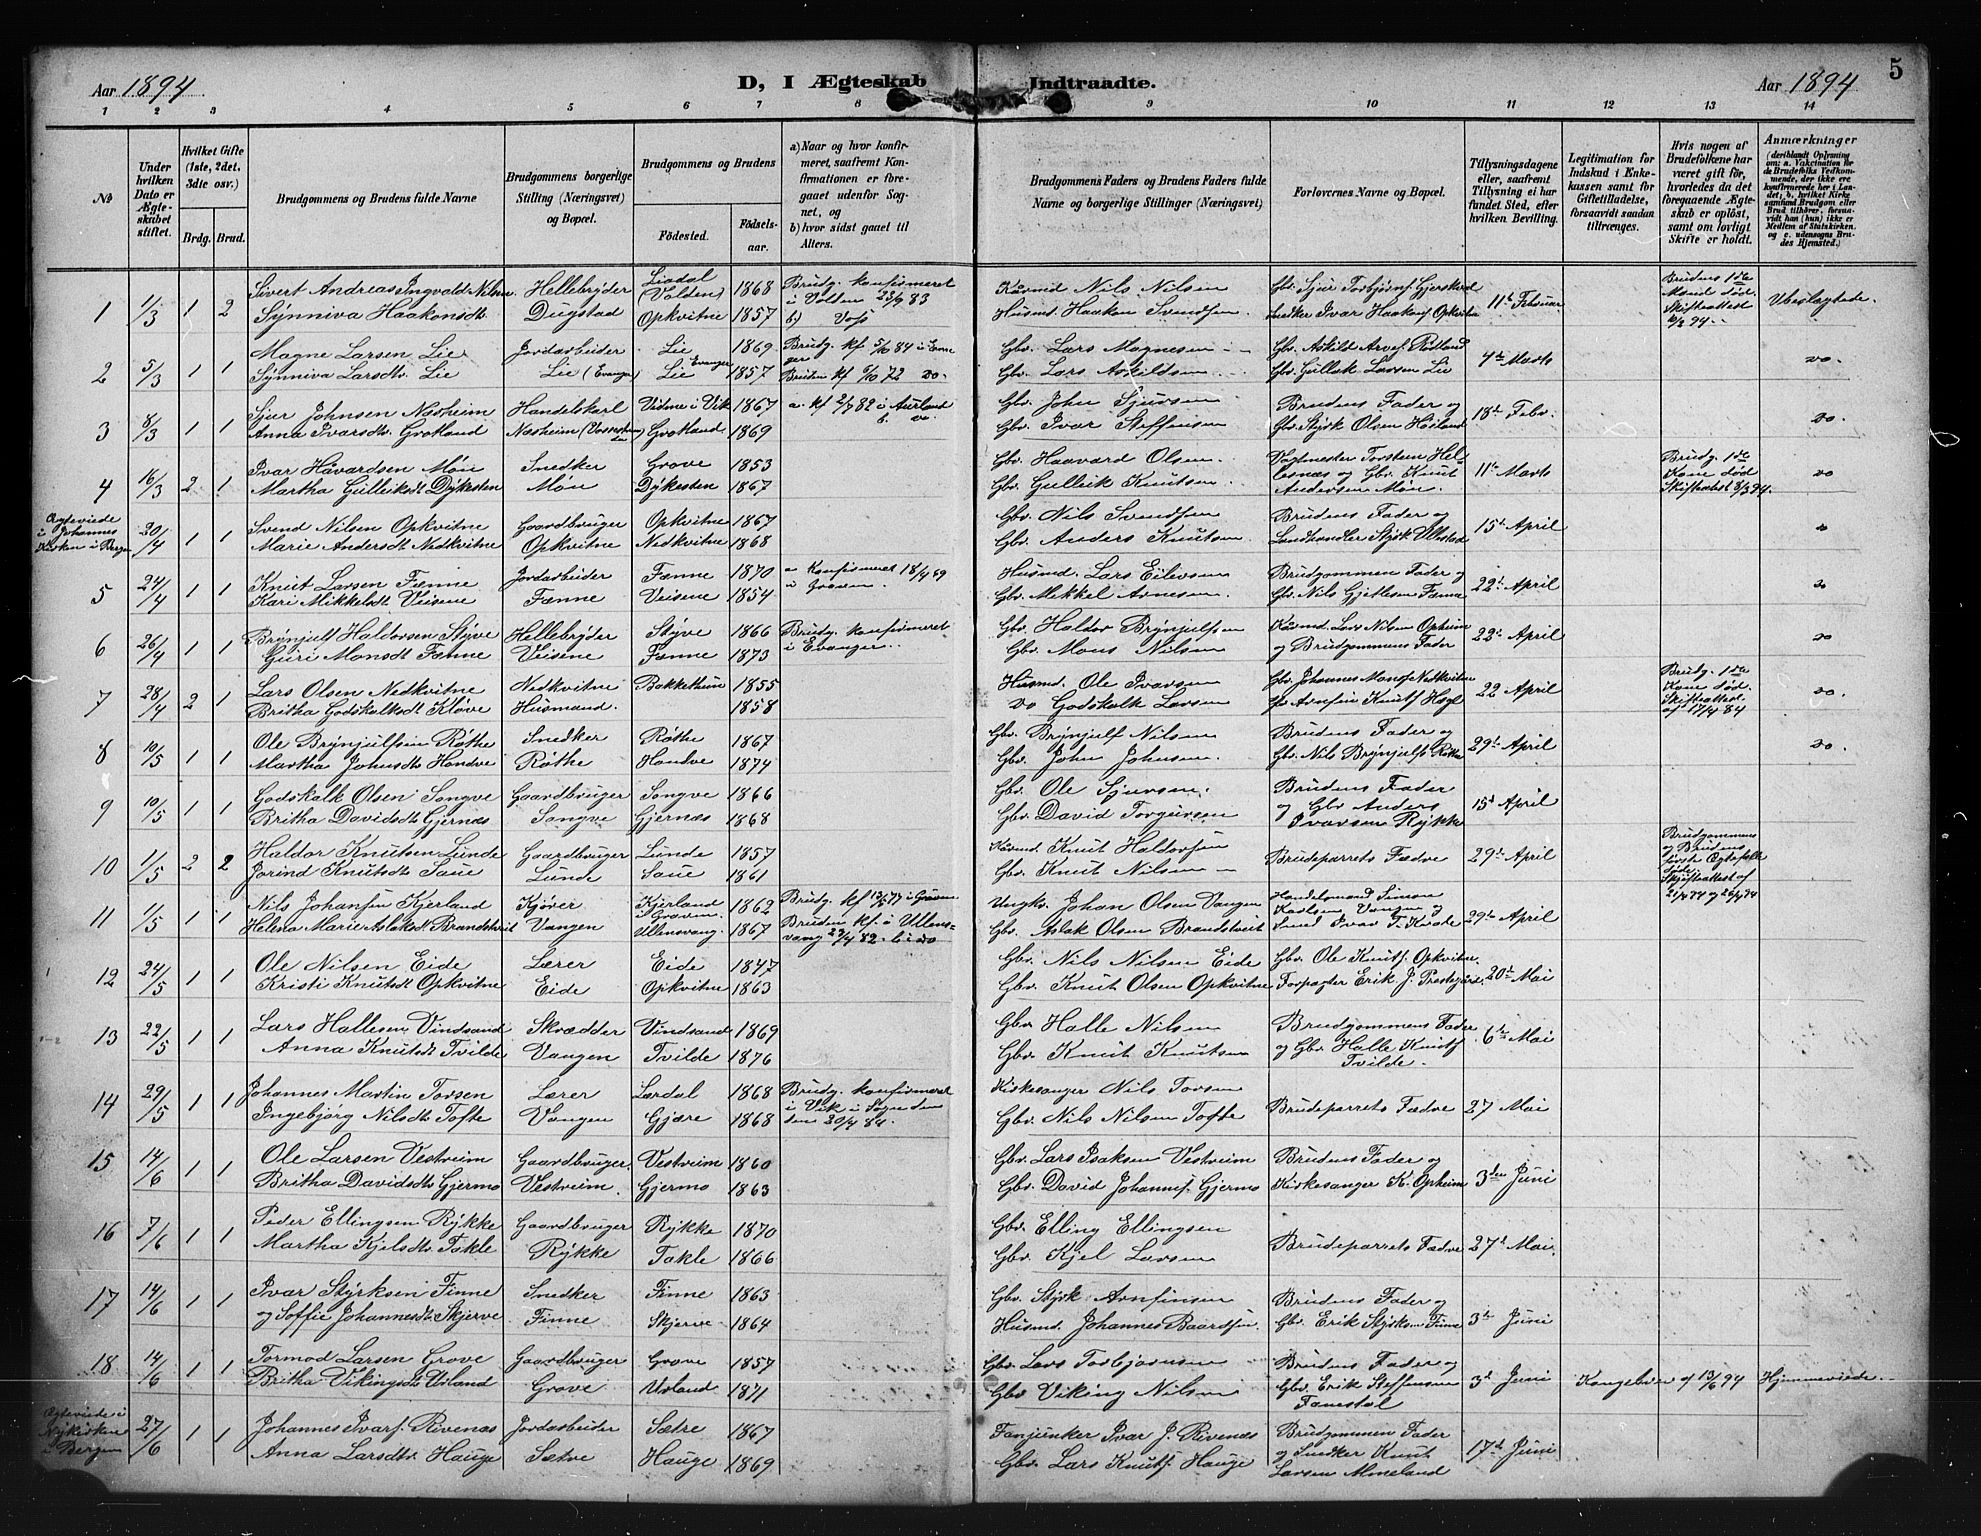 Aar 1894
D, I Ægteskab Indtraadte.
Aar 1894
5
1 2 3 4 5 6 7 8 9 10 11 12 13 14
№
Under hvilken Dato er Ægteskabet stiftet.
Hvilket Gifte (1ste, 2det, 3die osv.)
Brdg. Brud.
Brudgommens og Brudens fulde Navne
Brudgommens borgerlige Stilling (Næringsvei) og Bopæl.
Brudgommens og Brudens
Fødested.
Fødselsaar.
a) Naar og hvor konfirmeret, saafremt Konfirmationen er foregaaet udenfor Sognet, og
b) hvor sidst gaaet til Alters.
Brudgommens Faders og Brudens Faders fulde Navne og borgerlige Stillinger (Næringsvei)
Forlovernes Navne og Bopæl.
Tillysningsdagene eller, saafremt Tillysning ei har fundet Sted, efter hvilken Bevilling.
Legitimation for Indskud i Enkekassen samt for Giftetilladelse, forsaavidt saadan tiltrænges.
Hvis nogen af Brudefolkene har været gift før, hvorledes da det foregaaende Ægteskab er opløst, samt om lovligt Skifte er holdt.
Anmærkninger (deriblandt Oplysning om: a. Vakcination for de Brudefolks Vedkommende, der ikke ere konfirmerede her i Landet; b. hvilket Kirkesamfund Brudgom eller Brud tilhører, forsaavidt han (hun) ikke er Medlem af Statskirken. og c. udensogns Brudes Hjemsted.)
1 1/3 1 2 Sivert Andreas Ingvald Nilsen Hellebryder Liadal (Volden) 1868 Brudg. konfirmeret i Volden 23/9 83 Kaarmd Nils Nilsen Gbr. Sjur Torbjørnf. Gjerskvd 11te Februar Brudens 1ste Mand død. Skifteattest Ubeslægtede.
Synniva Haakonsdtr. Dugstad Opkvitne 1857 b) Voss Husmd. Haaken Svendsen Snedker Ivar Haakens Opkvitne
2 5/3 1 1 Magne Larsen Lie Jordarbeider Lie 1869 Brudg. kf 5/10 84 i Evanger Gbr. Lars Magnesen Gbr. Askild Arvef Rødland 4de Marts do.
Synniva Larsdtr. Lie Lie (Evanger) Lie Evanger 1857 Bruden kf 6/10 72 do. Gbr. Lars Askildsen Gbr. Gullak Larsen Lie
3 8/3 1 1 Sjur Johnsen Næsheim Handelskarl Vidme i Vik 1867 a. kf 2/7 82 i Aurland Gbr. John Sjursen Brudens Fader og 18de Febr. do.
Anna Ivarsdtr. Grotland Næsheim Grotland 1869 b. do Gbr. Ivar Steffensen Gbr. Styrk Olsen Høiland
4 16/3 2 1 Ivar Håvardsen Møn Snedker Grove 1853 Gbr. Haavard Olsen Vagtmester Torstein Hellesnæs og Gbr. Knut Andersen Møn. 11te Marts Brudg. 1ste Kone død Skifteattest 8/3 94. do
Martha Gulleiksdt. Dykesten Møn Dykesten 1867 Gbr. Gulleik Knutsen
Ægteviede i Johannes Kirken i Bergen 20/4 1 1 Svend Nilsen Opkvitne Gaardbruger Opkvitne 1867 Gbr. Nils Svendsen Brudens Fader og 15de April do
Marie Andersdt Nedkvitne Opkvitne Nedkvitne 1868 Gbr. Anders Knutsen Landhandler Styrk Ullestad
5 24/4 1 1 Knut Larsen Fænne Jordarbeider Fænne 1870 a. konfirmeret 18/4 69 i Graven. Husmd. Lars Eilevsen Brudgommen Fader og 22de April do
Kari Mikkelsdt Veisene Fænne Veisene 1854 Gbr. Mekkel Arnesen Gbr. Nils Gjetlesen Fænne
6 26/4 1 1 Brynjulf Haldorsen Styve Hellebryder Styve 1866 Brudg. konfirmeret i Evanger. Gbr. Haldor Brynjulfsen Kaarmd. Lars Nilsen Opheim 22de April do
Guri Monsdt Fænne Veisene Fænne 1873 Gbr. Mons Nilsen og Brudgommens Fader
7 28/4 2 1 Lars Olsen Nedkvitne Nedkvitne Bakkethun 1855 Husmd. Ole Ivarsen Gbr. Johannes Monsf Nedkvitne 22 April Brudg. 1ste Kone død. Skifteattest af 17/4 84 do.
Britha Godskalksdt Kløve Husmand. 1858 do Godskalk Larsen
8 10/5 1 1 Ole Brynjulfsen Røthe Snedker Røthe 1867 Gbr. Brynjulf Nilsen Brudens Fader og 29de April do.
Martha Johnsdt Hondve Røthe Hondve 1874 Gbr. John Johnsen. Gbr. Nils Brynjulfs Røthe
9 10/5 1 1 Godskalk Olsen Songve Gaardbruger Songve 1866 Gbr. Ole Sjursen. Brudens Fader 15de April
Britha Davidsdt Gjernæs Songve Gjernæs 1868 Gbr. David Torgersen og Gbr Anders Ivarsen Rykke
10 1/5 2 2 Haldor Knutsen Lunde Gaardbruger Lunde 1857 Kaarmd. Knut Haldorsen Brudeparrets Fædre 29de April Brudgommens og Brudens første Ægtefælle døde. Skifteattest af
Jorind Knutsdt Saue Lunde Saue 1861 Gbr. Knut Nilsen
11 1/5 1 1 Nils Johansen Kjerland Kjører Kjerland i Graven 1862 Brudg. kf i Graven Ungk. Johan Olsen Vangen Handelsmand Simon Karlsen Vangen og 29de April
Helena Marie Aslaksdt Brandstveit Vangen Ullensvang. 1867 Bruden kf. i Ullensvang 82. b i do Gbr. Aslak Olsen Brandstveit Smed Ivar T. Kvale
12 24/5 1 1 Ole Nilsen Eide Lærer Eide 1847 Gbr. Nils Nilsen Eide Gbr. Ole Knutf. Opkvitne. 20de Mai
Kristi Knutsdt Opkvitne Eide Opkvitne 1863 Gbr. Knut Olsen Opkvitne Forpagter Erik J. Prestegård.
13 22/5 1 1 Lars Hallesen Vindsand Skrædder Vindsand 1869 Gbr Halle Nilsen Brudgommens Fader og Gbr. Halle Knutf Tvilde. 6te Mai
Anna Knutsdt Tvilde Vangen Tvilde 1876 Gbr. Knut Knutsen
14 29/5 1 1 Johannes Martin Torsen Lærer Lærdal 1868 Brudg. konfirmeret i Vik i Sogn den 20/4 84. Kirkesanger Nils Torsen Brudeparrets Fædre 27 Mai
Ingebjørg Nilsdt Tofte Vangen Gjære 1868 Gbr. Nils Nilsen Tofte
15 14/6 1 1 Ole Larsen Vestreim Gaardbruger. Vestreim 1860 Gbr. Lars Isaksen Vestreim Brudens Fader og 3den Juni
Britha Davidsdt Gjermo Vestreim. Gjermo 1863 Gbr. David Johannesf. Gjermo Kirkesanger K. Opheim
16 7/6 1 1 Peder Ellingsen Rykke Gaardbruger Rykke 1870 Gbr. Elling Ellingsen Brudeparrets Fædre 27de Mai.
Martha Kjelsdtr Takle Rykke Takle 1866 Gbr. Kjel Larsen
17 14/6 1 1 Ivar Styrksen Finne Snedker Finne 1863 Gbr. Styrk Arnfinsen Brudens Fader og 3de Juni
og Soffie Johannesdt. Skjerve Finne Skjerve 1864 Husmd. Johannes Baardsen. Gbr. Erik Styrks. Finne
18 14/6 1 1 Tormod Larsen Grove Gaardbruger Grove 1857 Gbr. Lars Torbjørnsen Brudens Fader og Gbr. Erik Steffensen 3de Juni Kongebrev af 13/6 94 Hjemmeviede.
Britha Vikingsdt Urland Grove Urland 1871 Gbr Viking Nilsen
Ægteviede i Nykirken i Bergen 27/6 1 1 Johannes Ivarf. Rivenæs Jordarbeider Sætre 1867 Fanjunker Ivar J. Rivenæs Brudgommen Fader og Snedker Knut Larsen Almeland 17de Juni
Anna Larsdtr. Hauge Sætre Hauge 1869 Gbr. Lars Knutf. Hauge